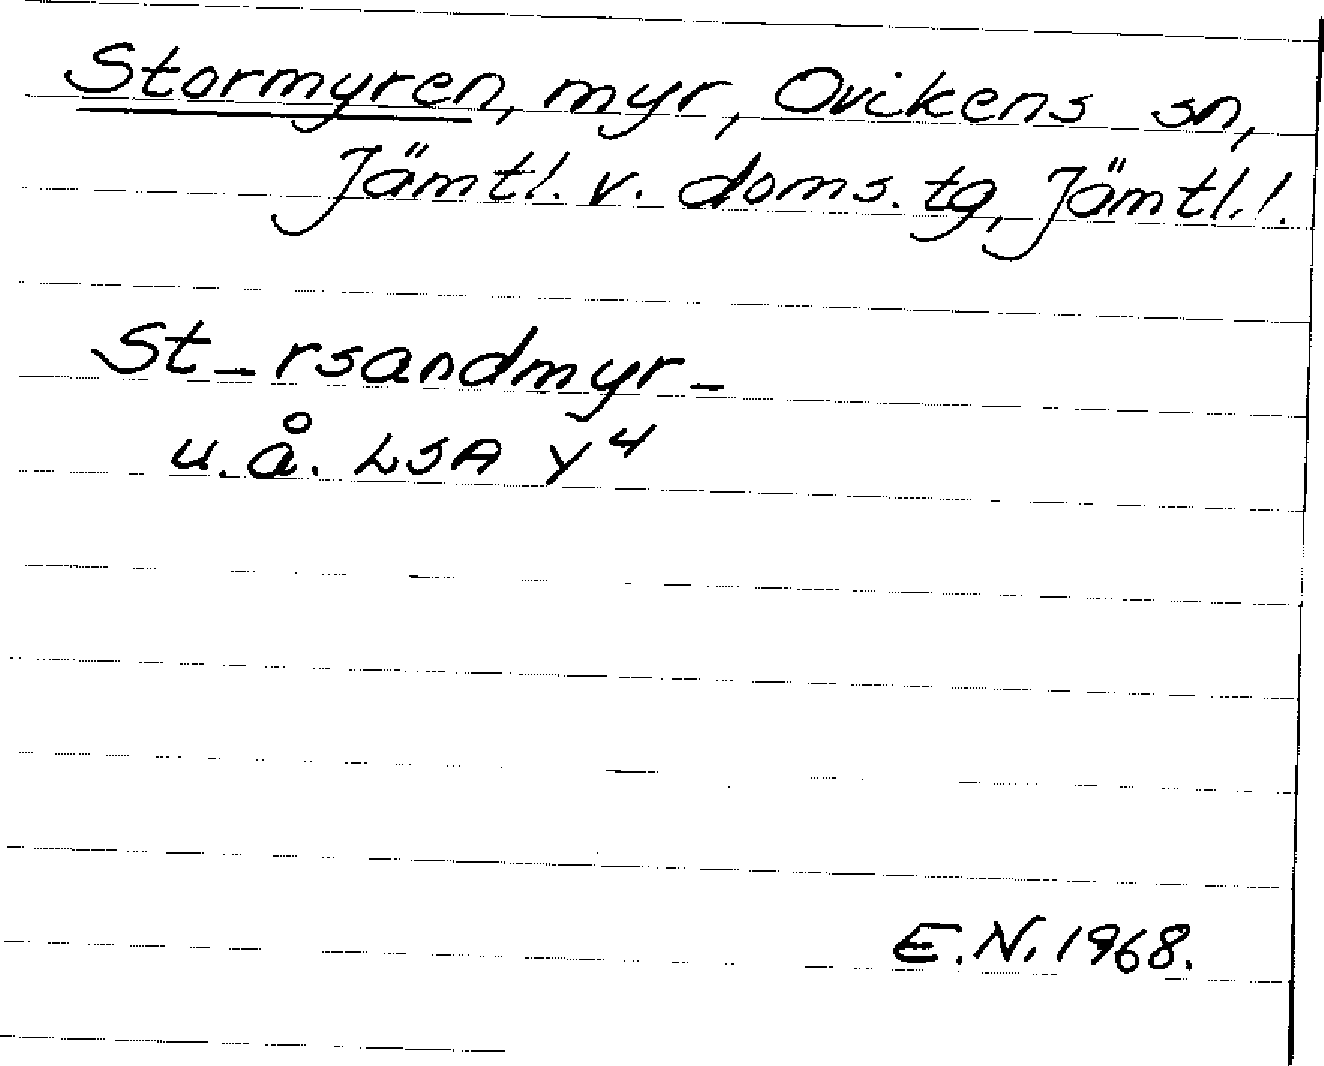 Stormyren, myr, Ovikens sn,
Jämtl. v. doms. tg, Jämtl. l.
St_rsandmyr_
u. å. LSA Y⁴
E.N. 1968.